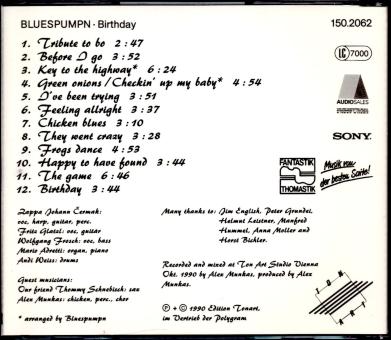 BLUESPUMPN · Birthday
150.2062
1. Tribute to bo 2:47
2. Before I go 3:52
3. Key to the highway* 6:24
4. Green onions/Checkin' up my baby* 4:54
5. I've been trying 3:51
6. Feeling allright 3:37
7. Chicken blues 3:10
8. They went crazy 3:28
9. Frogs dance 4:53
10. Happy to have found 3:44
11. The game 6:46
12. Birthday 3:44
LC 7000
AUDIOSALES
SONY.
FANTASTIK
THOMASTIK
Musik von
der besten Saite!
Zappa Johann Čermak:
voc, harp, guitar, perc.
Fritz Glatzl: voc, guitar
Wolfgang Frosch: voc, bass
Mario Adretti: organ, piano
Andi Weiss: drums
Guest musicians:
Our friend Thommy Schnebisch: sax
Alex Munkas: chicken, perc., chor
* arranged by Bluespumpn
Many thanks to: Jim English, Peter Grundei,
Helmut Leistner, Manfred
Hummel, Anna Moller and
Horst Bichler.
Recorded and mixed at Ton Art Studio Vienna
Okt. 1990 by Alex Munkas, produced by Alex
Munkas.
℗ + © 1990 Edition Tonart,
im Vertrieb der Polygram
TON
ART